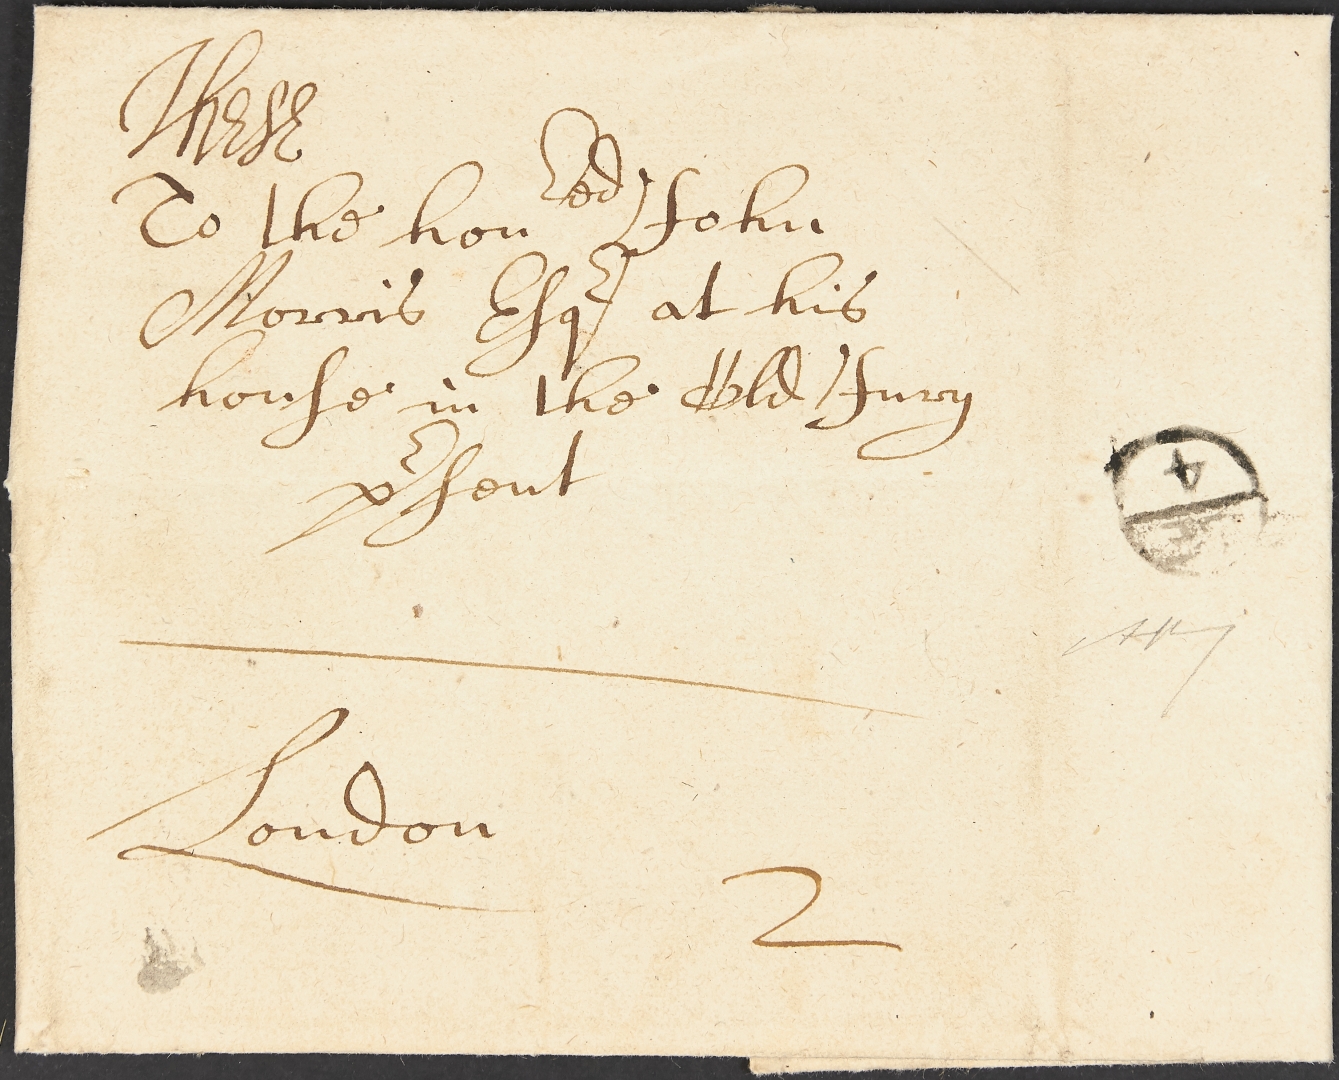 These
To the hon^red John
Morris Esq^r at his
house in the Old Jury
p^rsent
4
London
2